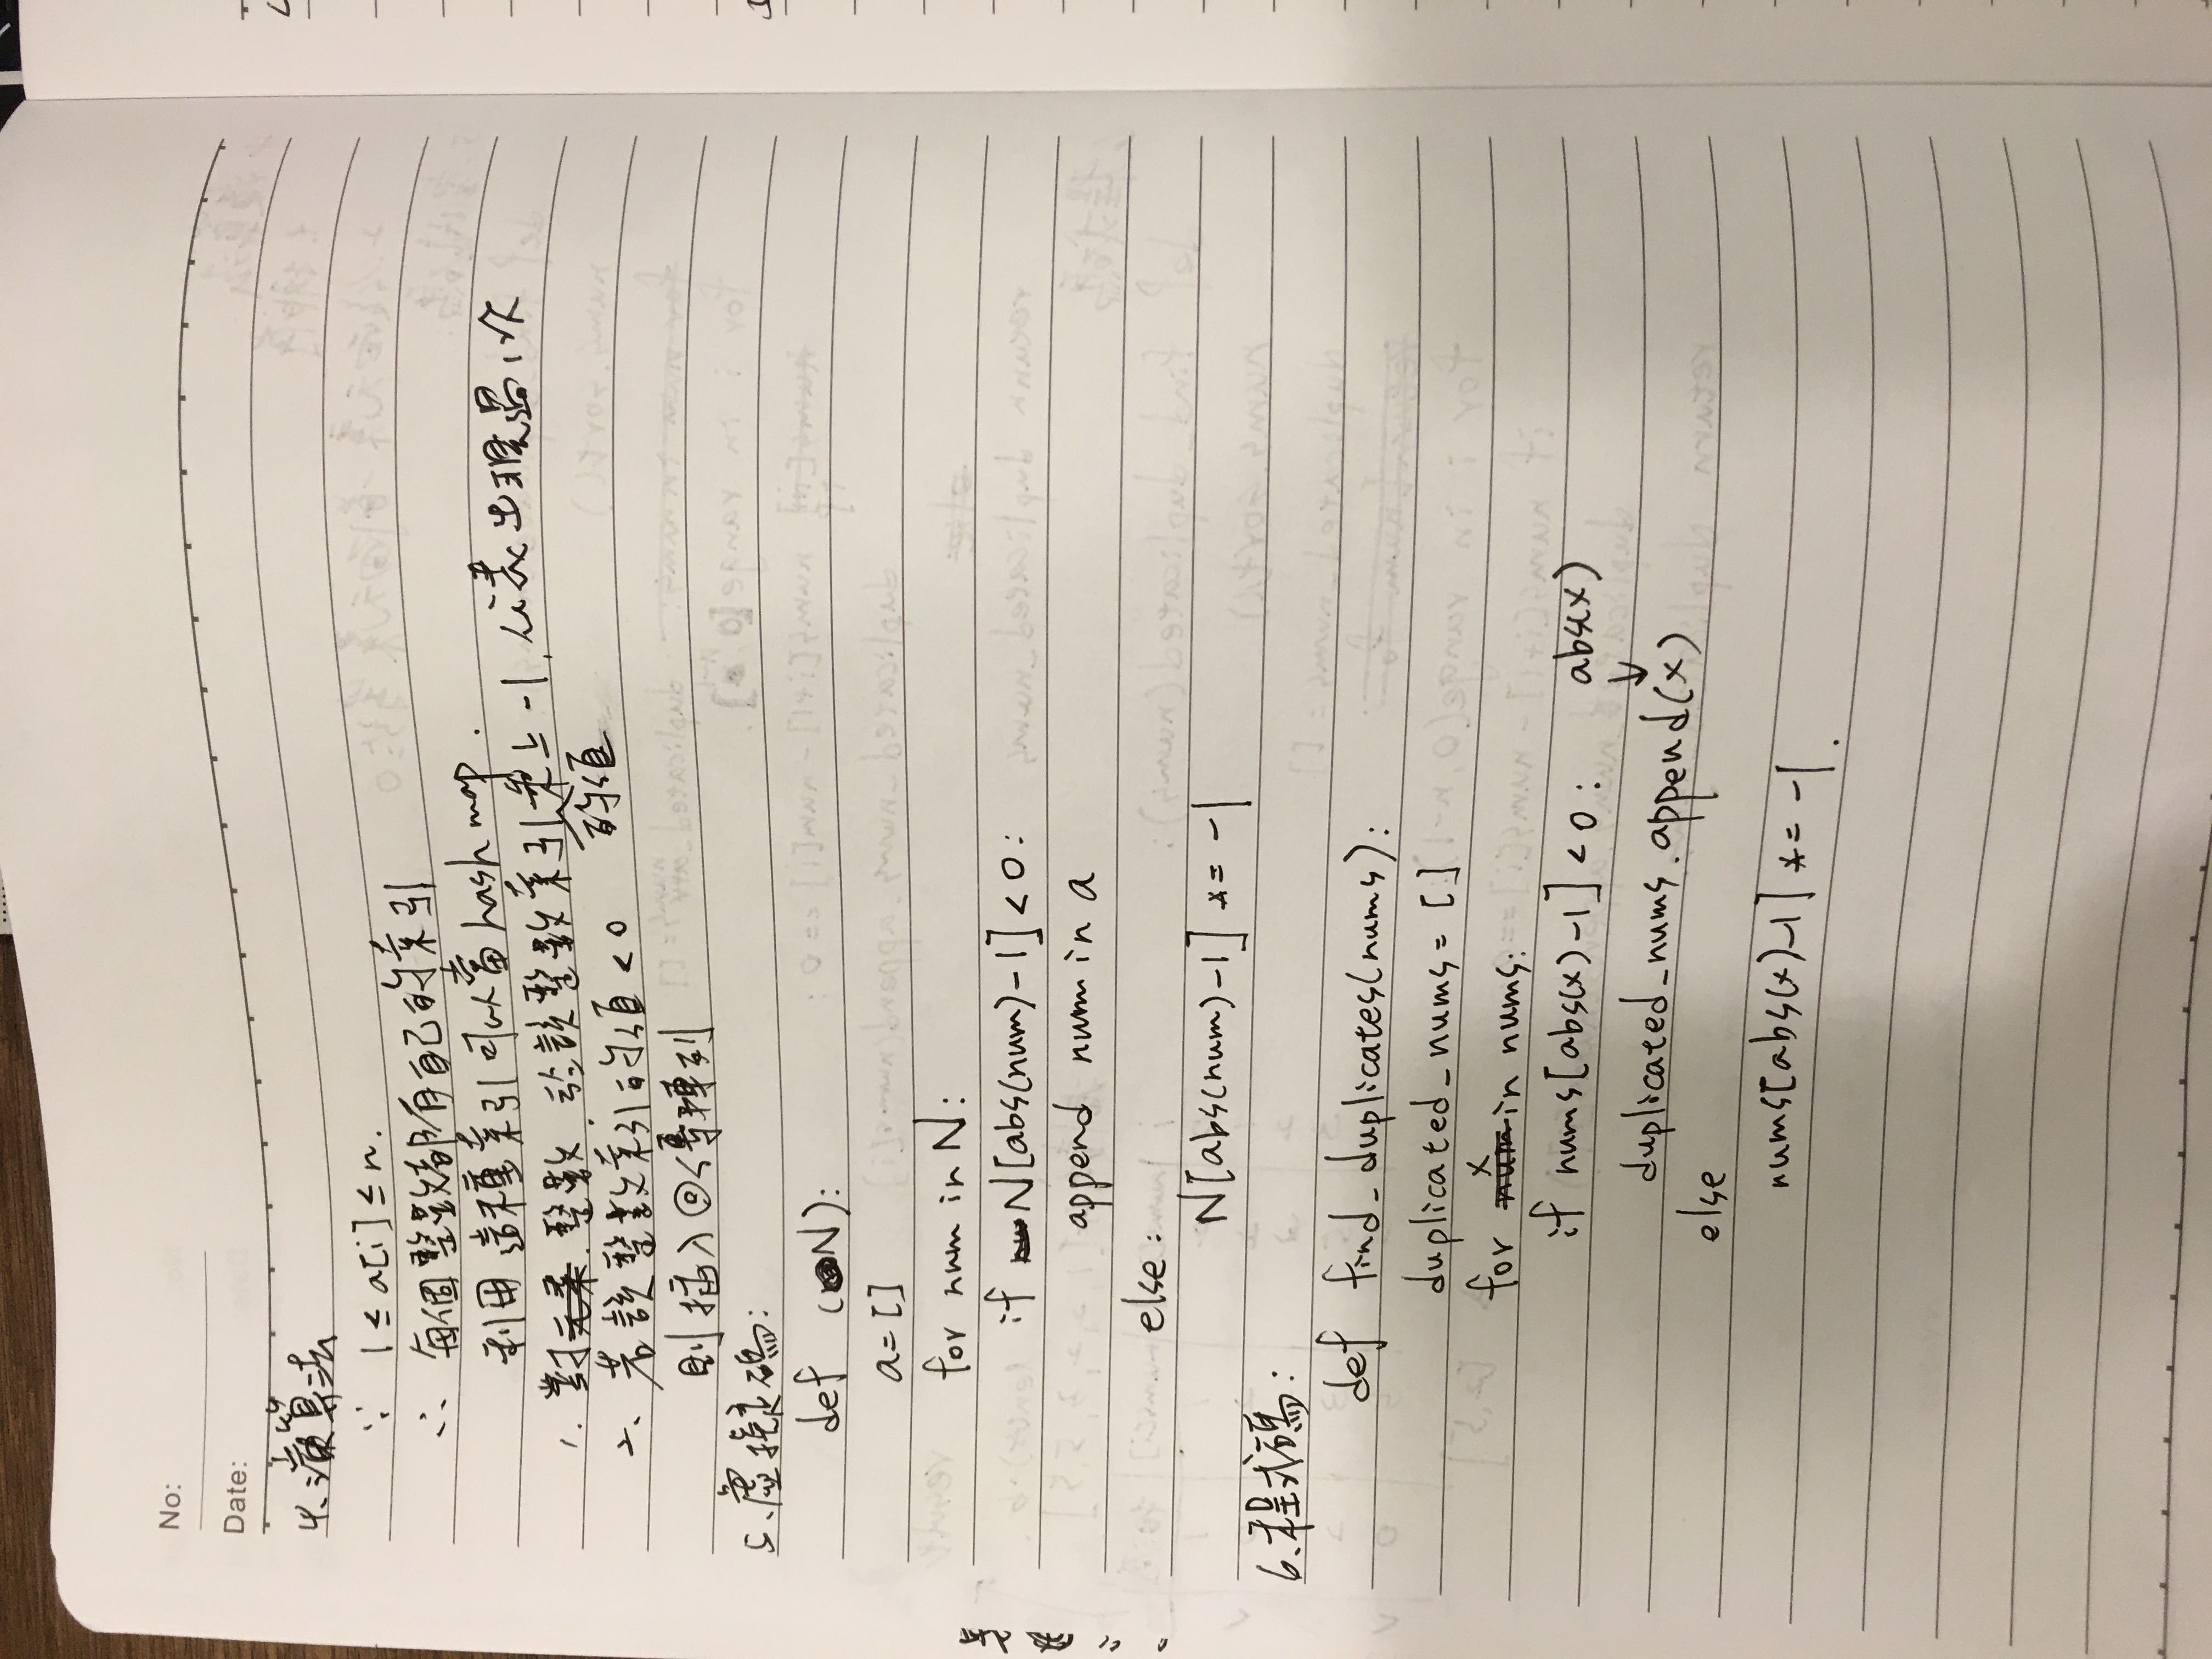 No:
Date:
4、演算法
∵ 1 ≤ a[i] ≤ n.
∴ 每個整數都有自己的索引
利用這種索引可以當 hash map.
1. 對元素.整數.給該整數索引乘上 -1, 代表出現過1次
的值
2、若該整數索引的值 < 0
則插入回傳陣列
5、虛擬碼:
def (N):
a=[]
for num in N:
if N[abs(num)-1] < 0:
append num in a
else:
N[abs(num)-1] *= -1
6、程式碼:
def find_duplicates(nums):
duplicated_nums = []
x
for num in nums:
if nums[abs(x)-1] < 0: abs(x)
↓
duplicated_nums.append(x)
else
nums[abs(x)-1] *= -1.